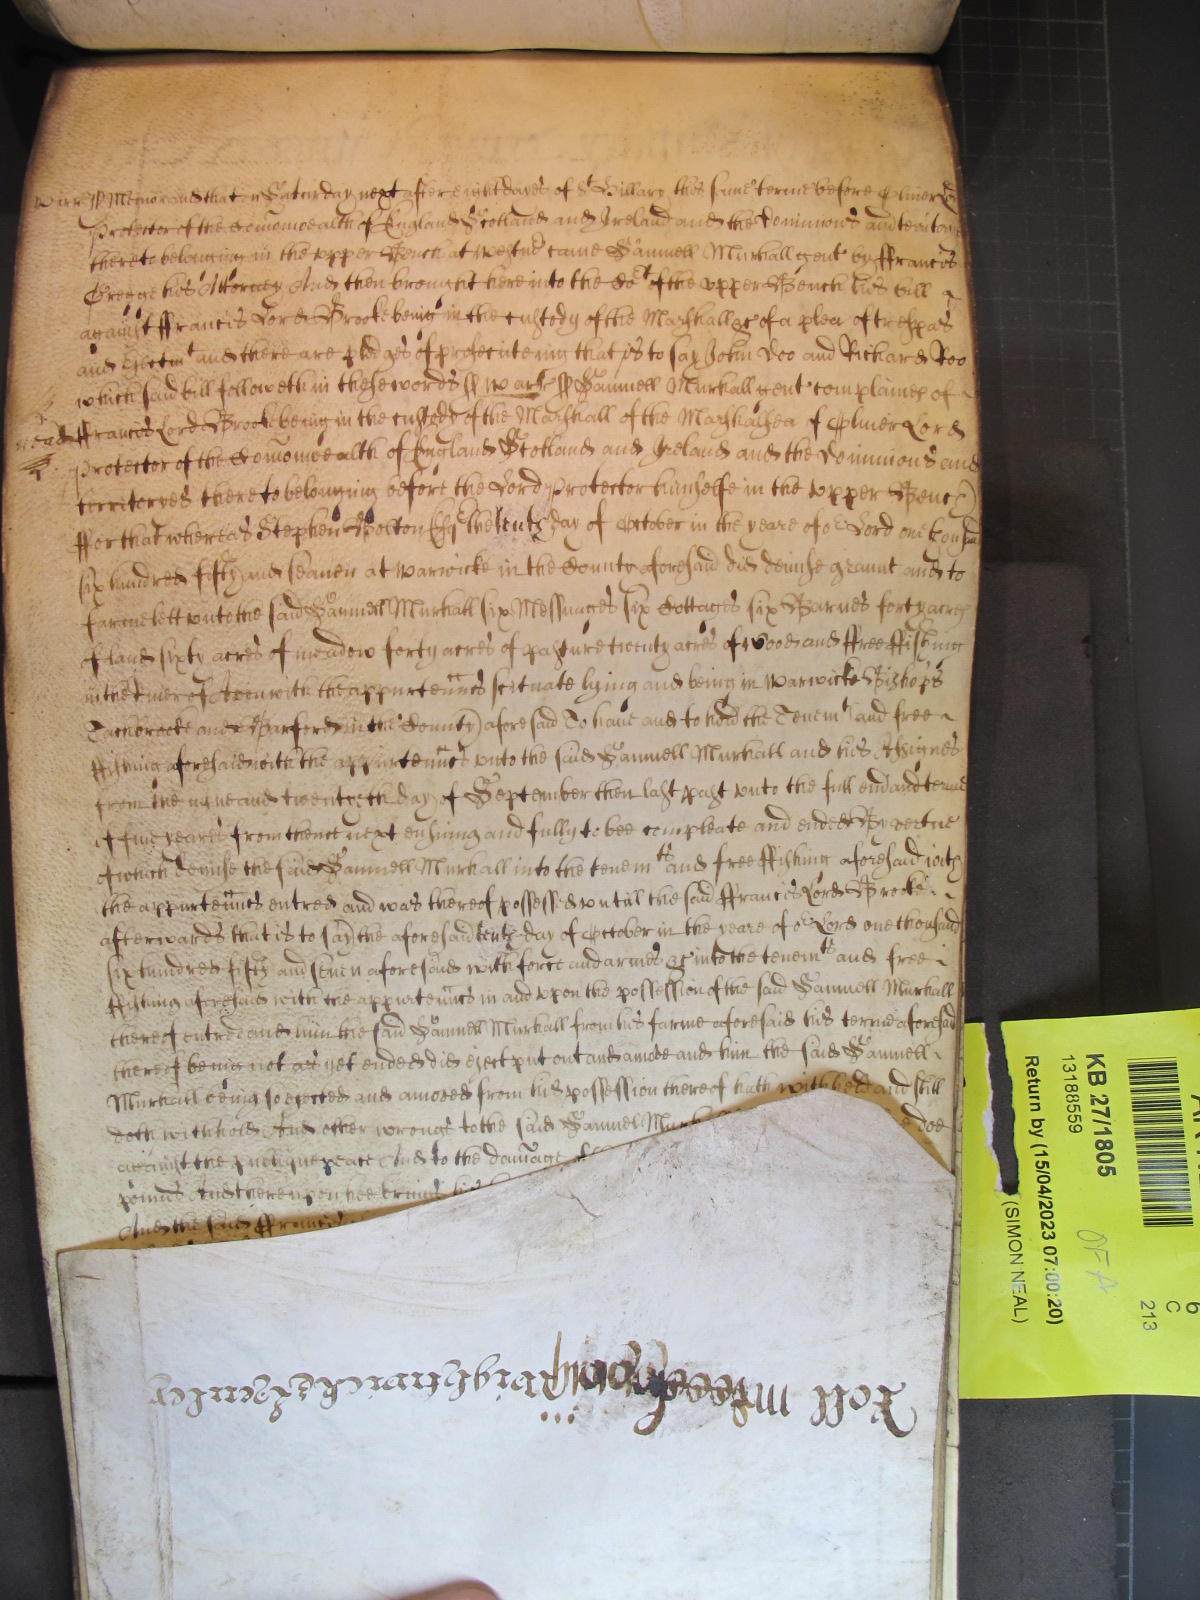 Warr ss Memorand that on Saturday next after eight dayes of St Hillary this same terme before Oliver Lord
Protector of the Comonwealth of England Scotland and Ireland and the Dominions and territoryes
thereto belonging in the upper Bench at Westmr came Samuell Murhall gent by ffrancis
George his Attorney And then brought here into the Cort of the upper Bench his bill
against ffrancis Lord Brooke being in the custody of the Marshall &c of a plea of trespas
and Ejectmt and there are pledges of prosecuteing that is to say John Doo and Richard Roo
which said bill followeth in these words ss Warr ss Samuell Murhall gent complaines of
ffrancis Lord Brooke being in the custody of the Marshall of the Marshalsea of Oliver Lord
Protector of the Comonwealth of England Scotland and Ireland and the Dominions and
territoryes there to belonging before the Lord Protector himselfe in the upper Bench
ffor that whereas Stephen Bolton Esqr the tenth day of October in the yeare of or Lord one thousand
six hundred fifty and seaven at Warwicke in the County aforesaid did demise graunt and to
farme lett unto the said Samuell Murhall six Messuages six Cottages six Barnes forty acres
of land sixty acres of meadow forty acres of pasture twenty acres of wood and ffree ffishing
in the River of Avon with the appurtenncs scituate lying and being in Warwicke Bishops
Tachbrooke and Barford in the County aforesaid To have and to hold the Tenemts and free
ffishing aforesaid with the appurtenncs unto the said Samuell Murhall and his Assignes
from the nyne and twentyeth day of September then last past unto the full end and terme
of five yeares from thence next ensuing and fully to bee compleate and ended By vertue
of which demise the said Samuell Murhall into the tenemts and free ffishing aforesaid with
the appurtenncs entred and was thereof possessed untill the said ffrancis Lord Brooke
afterwards that is to say the aforesaid tenth day of October in the yeare of or Lord one thousand
six hundred fifty and seven aforesaid with force and armes &c into the tenemts and free
ffishing aforesaid with the appurtenncs in and upon the possession of the said Samuell Murhall
thereof entred and him the said Samuell Murhall from his farme aforesaid his terme aforesaid
thereof being not as yet ended did eject put out and amove and him the said Samuell
Murhall being so ejected and amoved from his possession thereof hath withheld and still
doth withhold And other wrongs to the said Samuell Murh doe
against the publique peace And to the damage of
pounds And thereupon hee brings his
And the said ffrancis
KB 27/1805
13188559
Return by (15/04/2023 07:00:20)
(SIMON NEAL)
OFA
6
C
213